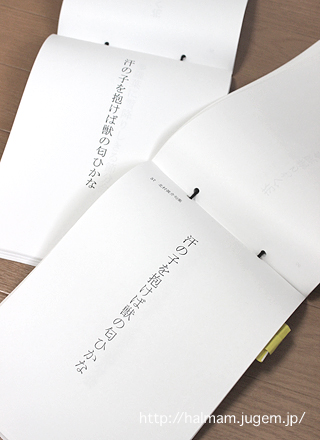 汗の子を抱けば獣の匂ひかな
汗の子を抱けば獣の匂ひかな
http://halmam.jugem.jp/